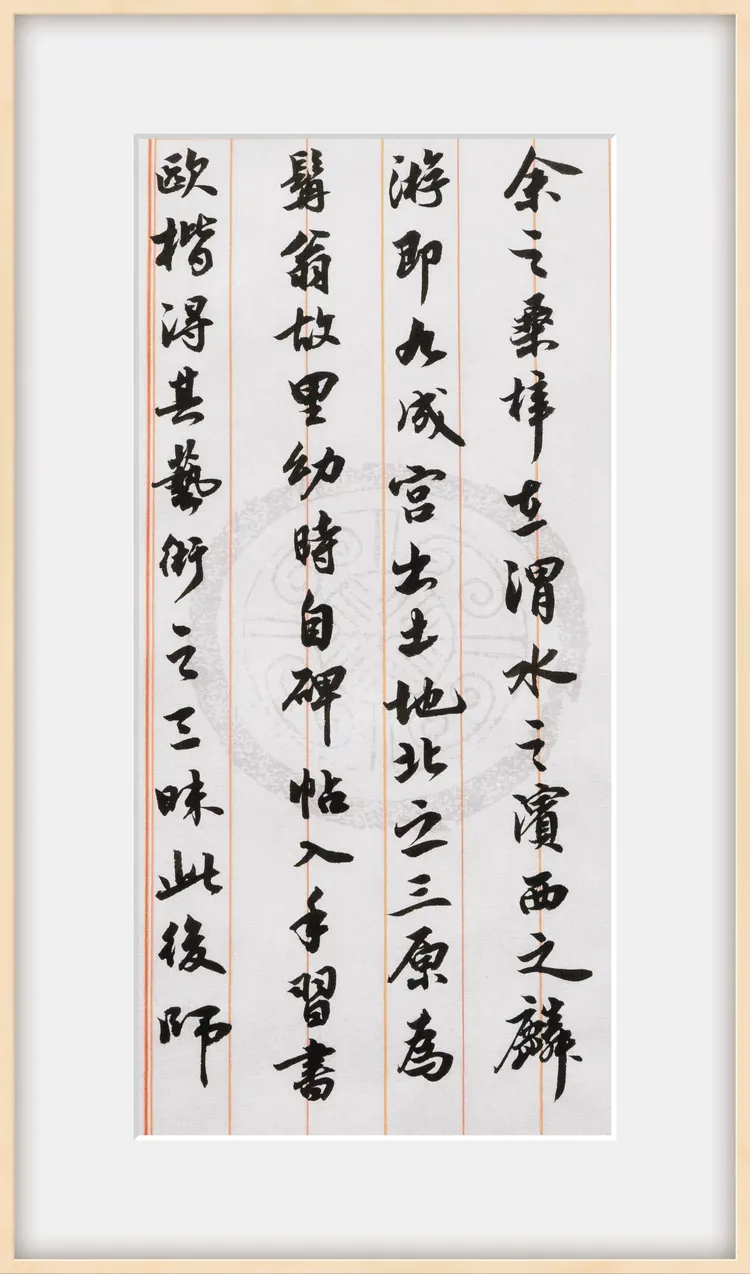 余之桑梓在渭水之濱西之麟
游即九成宮出土地北之三原為
髯翁故里幼時自碑帖入手習書
歐楷得其藝術之三昧此後師